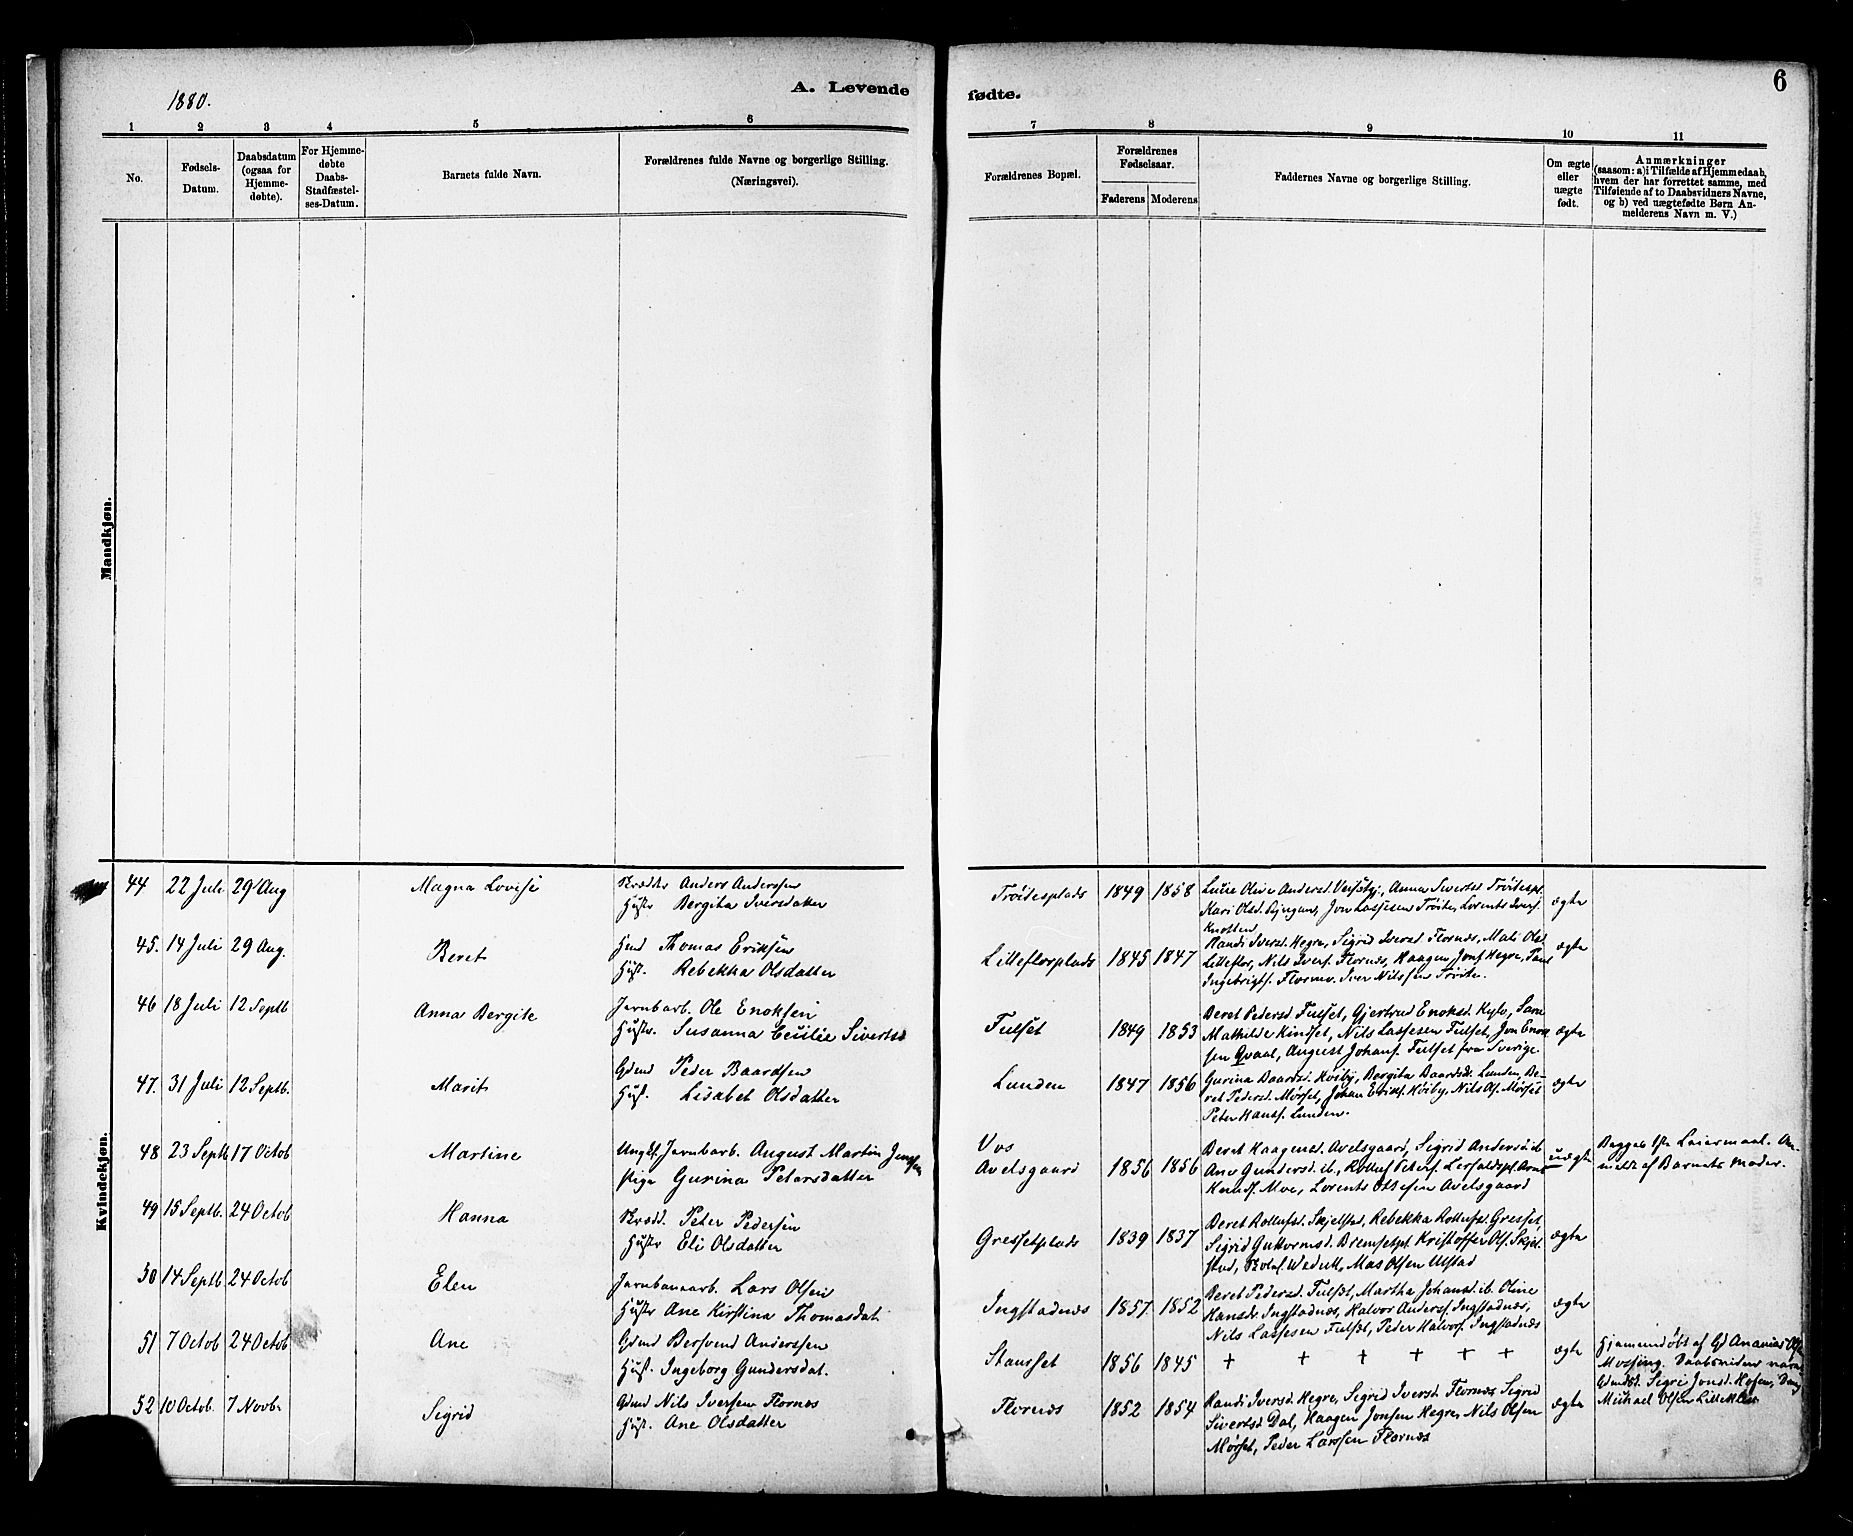 1880.
A. Levende fødte.
6
1 2 3 4 5 6 7 8 9 10 11
No.
Fødsels-Datum.
Daabsdatum (ogsaa for Hjemmedøbte).
For Hjemmedøbte Daabs-Stadfæstelses-Datum.
Barnets fulde Navn.
Forældrenes fulde Navne og borgerlige Stilling. (Næringsvei).
Forældrenes Bopæl.
Forældrenes Fødselsaar.
Faderens Moderens
Faddernes Navne og borgerlige Stilling.
Om ægte eller uægte født.
Anmærkninger
(saasom: a) i Tilfælde af Hjemmedaab,
hvem der har forrettet samme, med
Tilføiende af to Daabsvidners Navne,
og b) ved uægtefødte Børn An-
melderens Navn m. V.)
Mandkjøn.
Kvindekjøn.
44 22 Juli 29 Aug Magna Lovise
Anders Anderssen
Hustr Bergita Iversdatter
Trøitesplads 1849 1858
Anna Sivertsd Trøitespl.
Kari Olsd. Jon Lassesen Trøite, Lorents Ivers.
Knotten
ægte
45. 14 Juli 29 Aug. Beret
Thomas Eriksen
Hust. Rebekka Olsdatter
Lilleflorplads 1845 1847
Randi Iversd. Hegre, Sigrid Iversd Flornæs, Mali Olsd.
Lilleflor, Nils Ivers. Flornæs, Haagen Jons. Hegre, Paul
Ingebrigts. Iver Nilssen Trøite.
ægte
46 18 Juli 12 Septb Anna Bergite
Jernbarb. Ole Enoksen
Hustr. Susanna Cecilie Sivertsd
Fulset 1849 1853
Beret Pedersd. Fulset, Gjertrud Enoksd. Sara
Mathilde Kindset, Nils Lassesen Fulset, Jon Enok
sen Qvaal, August Johans. Fulset fra Sverige.
ægte
47. 31 Juli 12 Septb. Marit
Gdmd Peder Baardsen
Hust. Lisabet Olsdatter
Lunden 1847 1856
Gurina Baardsd. Bergita Baardsd. Lunden, Be-
ret Pedersd. Mørset, Johan Nils Ols. Mørset
Peter Hans. Lunden.
ægte
48 23 Septb 17 Octob Martine
Ungk. Jernbarb. August Martin Jenssen
Pige Gurina Petersdatter
Vos
Avelsgaard 1856 1856
Beret Haagensd. Avelsgaard, Sigrid Andersd ib.
Ane Gundersd. ib., Rolluf Peters. Lerfaldspl. Arnt
Moe, Lorents Ottesen Avelsgaard
uægte
Begges 1ste Leiermaal. An-
meldt af Barnets Moder.
49 15 Septb. 24 Octob Hanna
Peter Pedersen
Hustr Eli Olsdatter
Gressetplads 1839 1837
Beret Rollufsd. Skjelstad, Rebekka Rollufsd. Gresset,
Sigrid Guttormsd. Bremsetpl. Kristoffer Ols. Skjel-
stad, Mas Olsen Ulstad
ægte
50 14 Septb 24 Octob Elen
Jernbanearb. Lars Olsen
Hustr Ane Kirstina Thomasdat.
Ingstadnæs 1857 1852
Beret Pedersd. Fulset, Martha Johansd. ib. Oline
Hansdr. Ingstadnæs, Halvor Anders. Ingstadnæs,
Nils Lassesen Fulset, Peder Halvors. Ingstadnæs
ægte
51 7 Octob 24 Octob Ane
Gdmd Bersvend Anderssen
Hust. Ingeborg Gundersdat.
Stansset 1856 1845
+ + + + + +
ægte
Hjemmedøbt af Gd Ananias Ols.
Mossing. Daabsvidner vare
Sigri Jonsd. Hosen,
Mikael Olsen Lillemoen
52 10 Octob. 7 Novb. Sigrid
Gdmd Nils Iversen Flornæs
Hust. Ane Olsdatter
Flornæs 1852 1854
Randi Iversd. Hegre, Sigrid Iversd. Flornæs, Sigrid
Sivertsd Dal, Haagen Jonsen Hegre, Nils Olsen
Mørset, Peder Larssen Flornæs
ægte